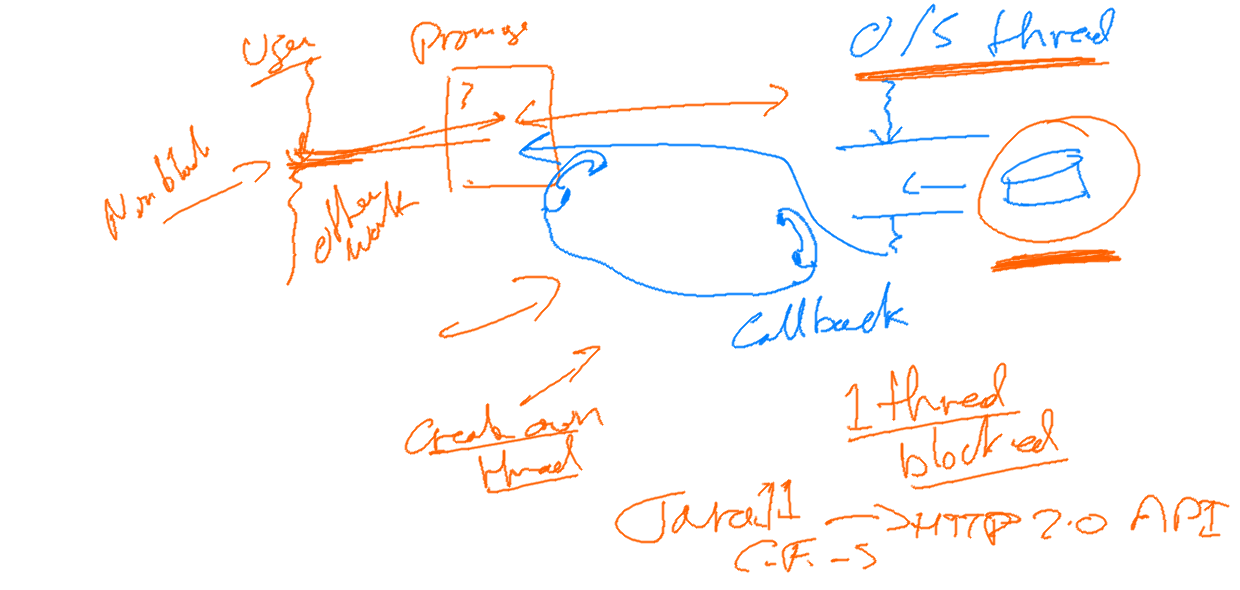 User
Promise
?
O/S thread
Non block
Other
work
Callback
Create own
thread
1 thred
blocked
Java 11 → HTTP 2.0 API
C.F. - S